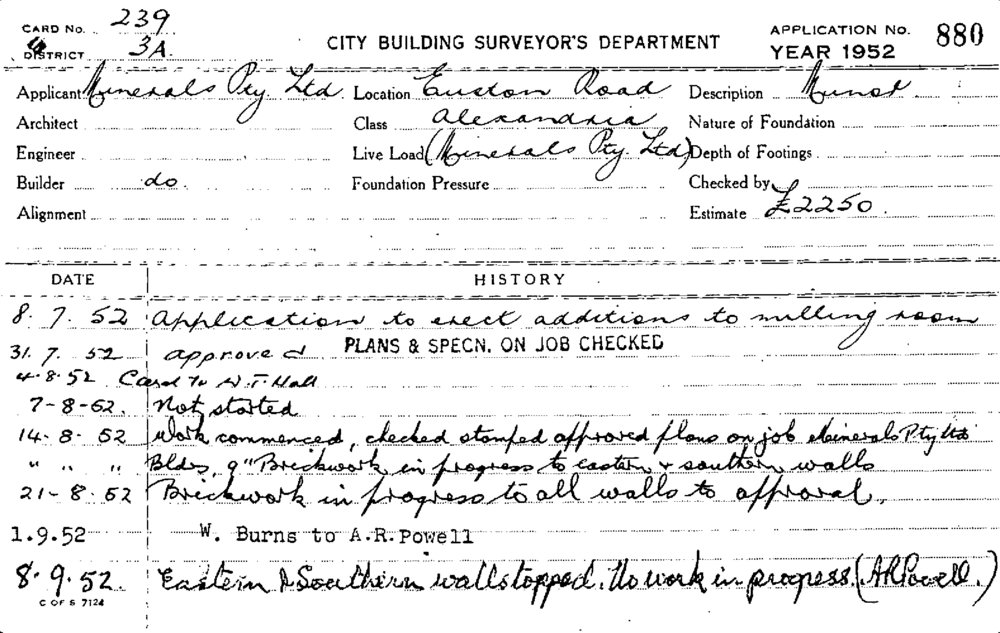 CARD No. 239
DISTRICT 3A
CITY BUILDING SURVEYOR'S DEPARTMENT
APPLICATION No. 880
YEAR 1952
Applicant Minerals Pty. Ltd. Location Euston Road Description
Architect Class Alexandria Nature of Foundation
Engineer Live Load (Minerals Pty. Ltd) Depth of Footings
Builder do. Foundation Pressure Checked by
Alignment Estimate £2250
DATE HISTORY
8. 7. 52 Application to erect additions to milling room
31. 7. 52 approved PLANS & SPECN. ON JOB CHECKED
4-8-52 Card to W.T. Hall
7-8-52. Not started
14-8-52 Work commenced, checked stamped approved plans on job Minerals Pty Ltd
" " " Bldrs, 9" Brickwork in progress to eastern & southern walls
21-8-52 Brickwork in progress to all walls to approval.
1.9.52 W. Burns to A.R.Powell
8.9.52. Eastern & Southern walls topped. No work in progress. (A R Powell.)
C OF S 7124